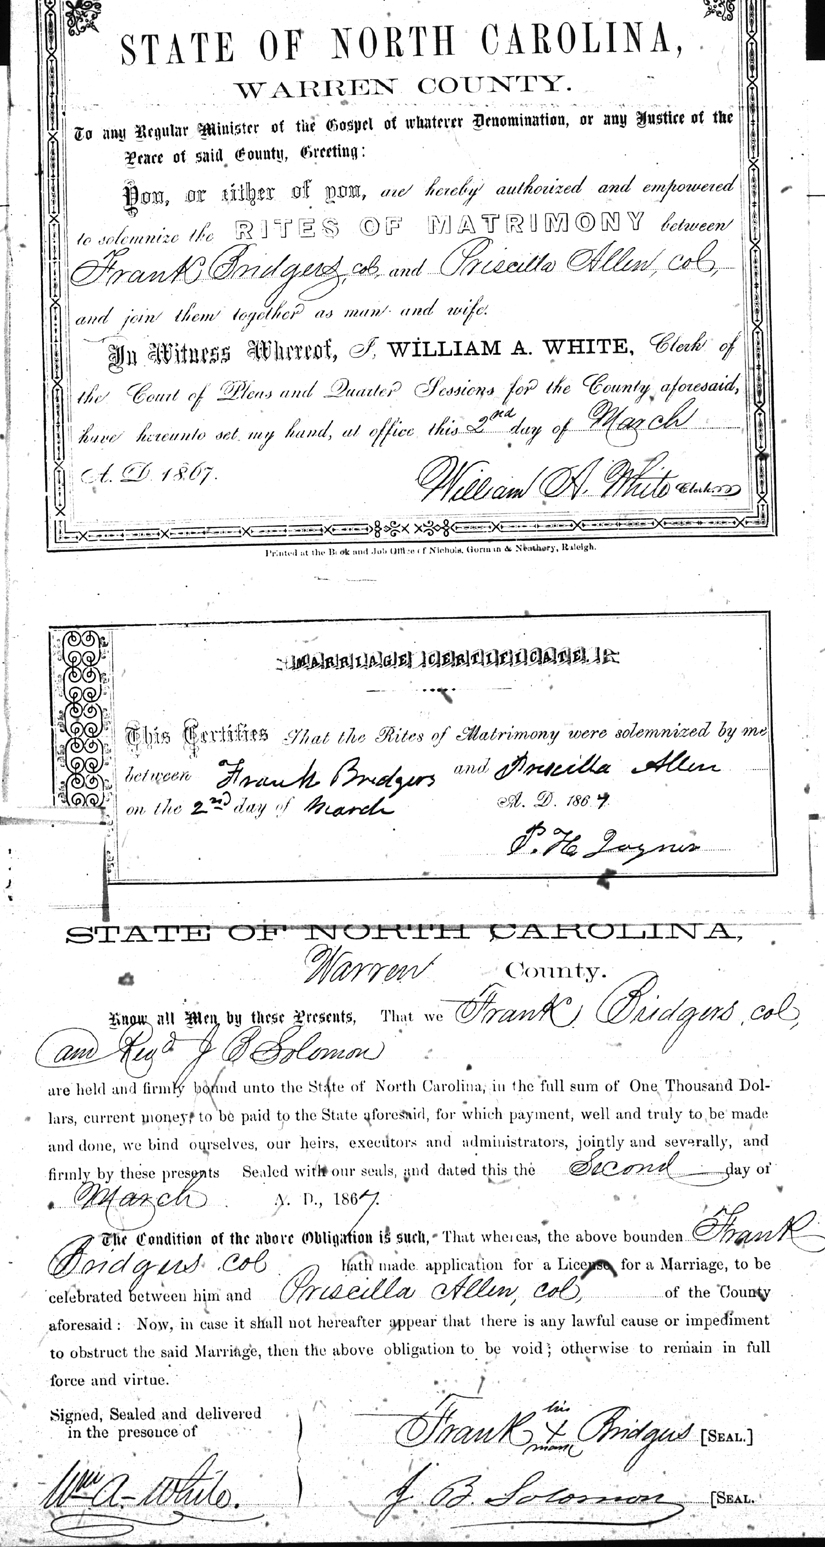 STATE OF NORTH CAROLINA,
WARREN COUNTY.
To any Regular Minister of the Gospel of whatever Denomination, or any Justice of the
Peace of said County, Greeting:
You, or either of you, are hereby authorized and empowered
to solemnize the RITES OF MATRIMONY between
Frank Bridgers, col, and Priscilla Allen, col,
and join them together as man and wife.
In Witness Whereof, I, WILLIAM A. WHITE, Clerk of
the Court of Pleas and Quarter Sessions for the County aforesaid,
have hereunto set my hand, at office this 2nd day of March
A. D. 1867.
William A. White Clerk
Printed at the Book and Job Office of Nichols, Gorman & Neathery, Raleigh.
MARRIAGE CERTIFICATE.
This Certifies That the Rites of Matrimony were solemnized by me
between Frank Bridgers and Priscilla Allen
on the 2nd day of March A. D. 1867.
P. H. Joyner
STATE OF NORTH CAROLINA,
Warren County.
Know all Men by these Presents, That we Frank Bridgers, col,
and Revd J B Solomon
are held and firmly bound unto the State of North Carolina, in the full sum of One Thousand Dol-
lars, current money, to be paid to the State aforesaid, for which payment, well and truly to be made
and done, we bind ourselves, our heirs, executors and administrators, jointly and severally, and
firmly by these presents Sealed with our seals, and dated this the Second day of
March A. D., 1867.
The Condition of the above Obligation is such, That whereas, the above bounden Frank
Bridgers col hath made application for a License for a Marriage, to be
celebrated between him and Priscilla Allen, col, of the County
aforesaid: Now, in case it shall not hereafter appear that there is any lawful cause or impediment
to obstruct the said Marriage, then the above obligation to be void; otherwise to remain in full
force and virtue.
Signed, Sealed and delivered
in the presence of
his
Frank X Bridgers [SEAL.]
mark
Wm A. White. J. B. Solomon [SEAL.